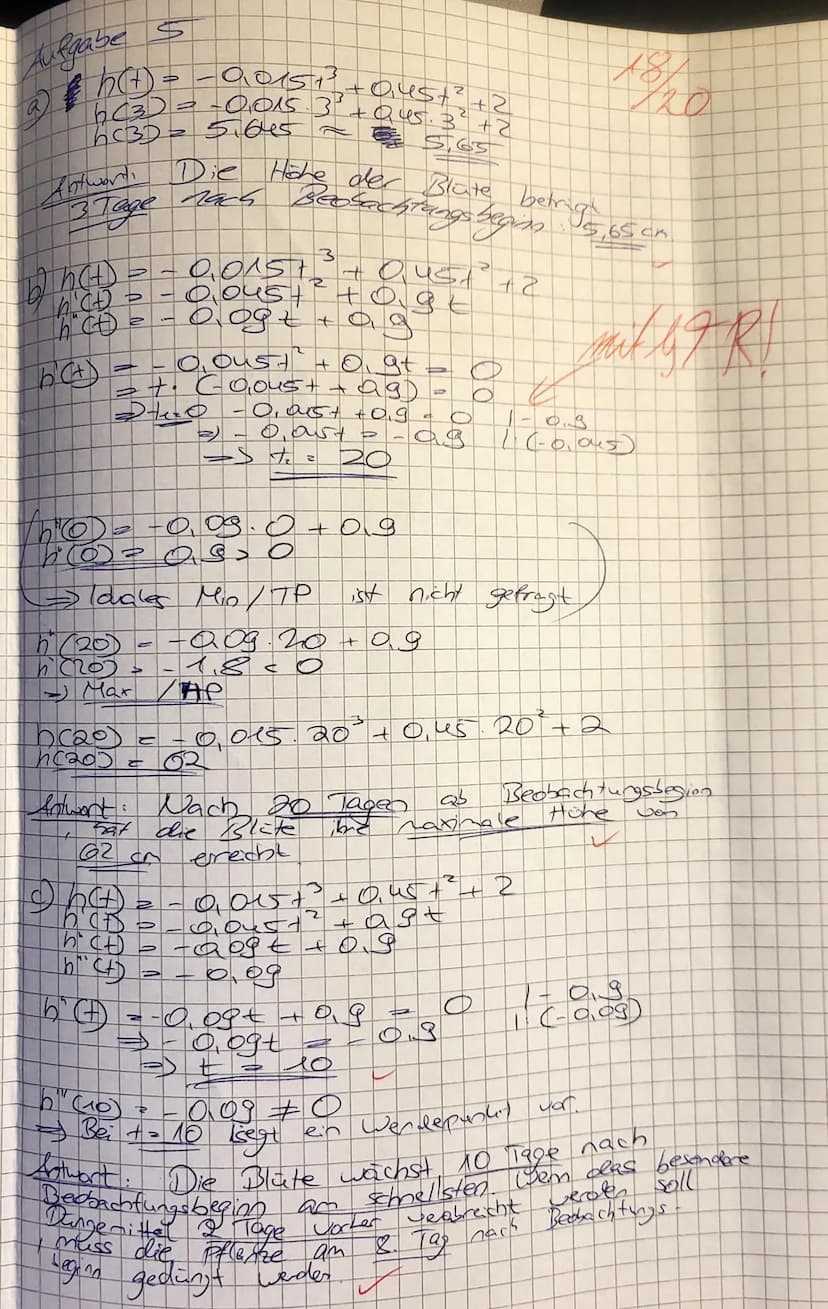 Aufgabe 5
18/20
a) h(t) = -0,015t³ + 0,45t² + 2
h(3) = -0,015·3³ + 0,45·3² + 2
h(3) = 5,645 ≈ 5,65
Antwort: Die Höhe der Blüte beträgt
3 Tage nach Beobachtungsbeginn: 5,65 cm
b) h(t) = -0,015t³ + 0,45t² + 2
h'(t) = -0,045t² + 0,9t
h''(t) = -0,09t + 0,9
mit GTR!
h'(t) = -0,045t² + 0,9t = 0
= t·(-0,045t + 0,9) = 0
=> t₁=0 -0,045t + 0,9 = 0 |-0,9
=> -0,045t = -0,9 |:(-0,045)
=> t₂ = 20
(h''(0) = -0,09·0 + 0,9
h''(0) = 0,9 > 0
=> lokales Min/TP ist nicht gefragt)
h''(20) = -0,09·20 + 0,9
h''(20) = -1,8 < 0
=> Max/HP
h(20) = -0,015·20³ + 0,45·20² + 2
h(20) = 62
Antwort: Nach 20 Tagen ab Beobachtungsbeginn
hat die Blüte ihre maximale Höhe von
62 cm erreicht.
c) h(t) = -0,015t³ + 0,45t² + 2
h'(t) = -0,045t² + 0,9t
h''(t) = -0,09t + 0,9
h'''(t) = -0,09
h''(t) = -0,09t + 0,9 = 0 |-0,9
=> -0,09t = -0,9 |:(-0,09)
=> t = 10
h'''(10) = -0,09 ≠ 0
=> Bei t=10 liegt ein Wendepunkt vor.
Antwort: Die Blüte wächst 10 Tage nach
Beobachtungsbeginn am schnellsten. Wenn das besondere
Düngemittel 2 Tage vorher verabreicht werden soll
, muss die Pflanze am 8. Tag nach Beobachtungs-
beginn gedüngt werden.